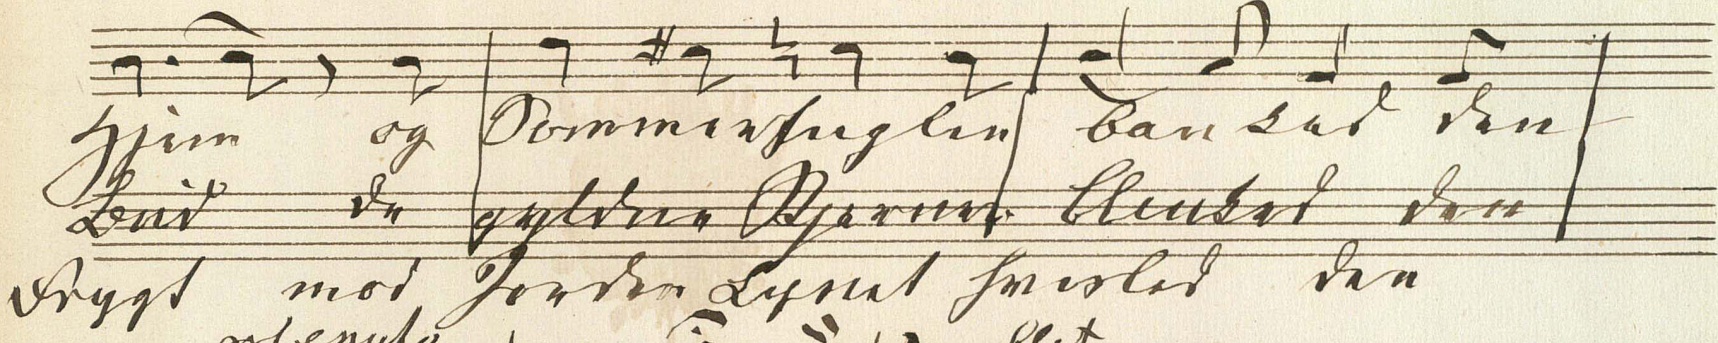 Hjem og Sommerfuglen banked den
Bud de gyldne Stjerner blinked den
Frygt mod Jorden Lynet hvisled den